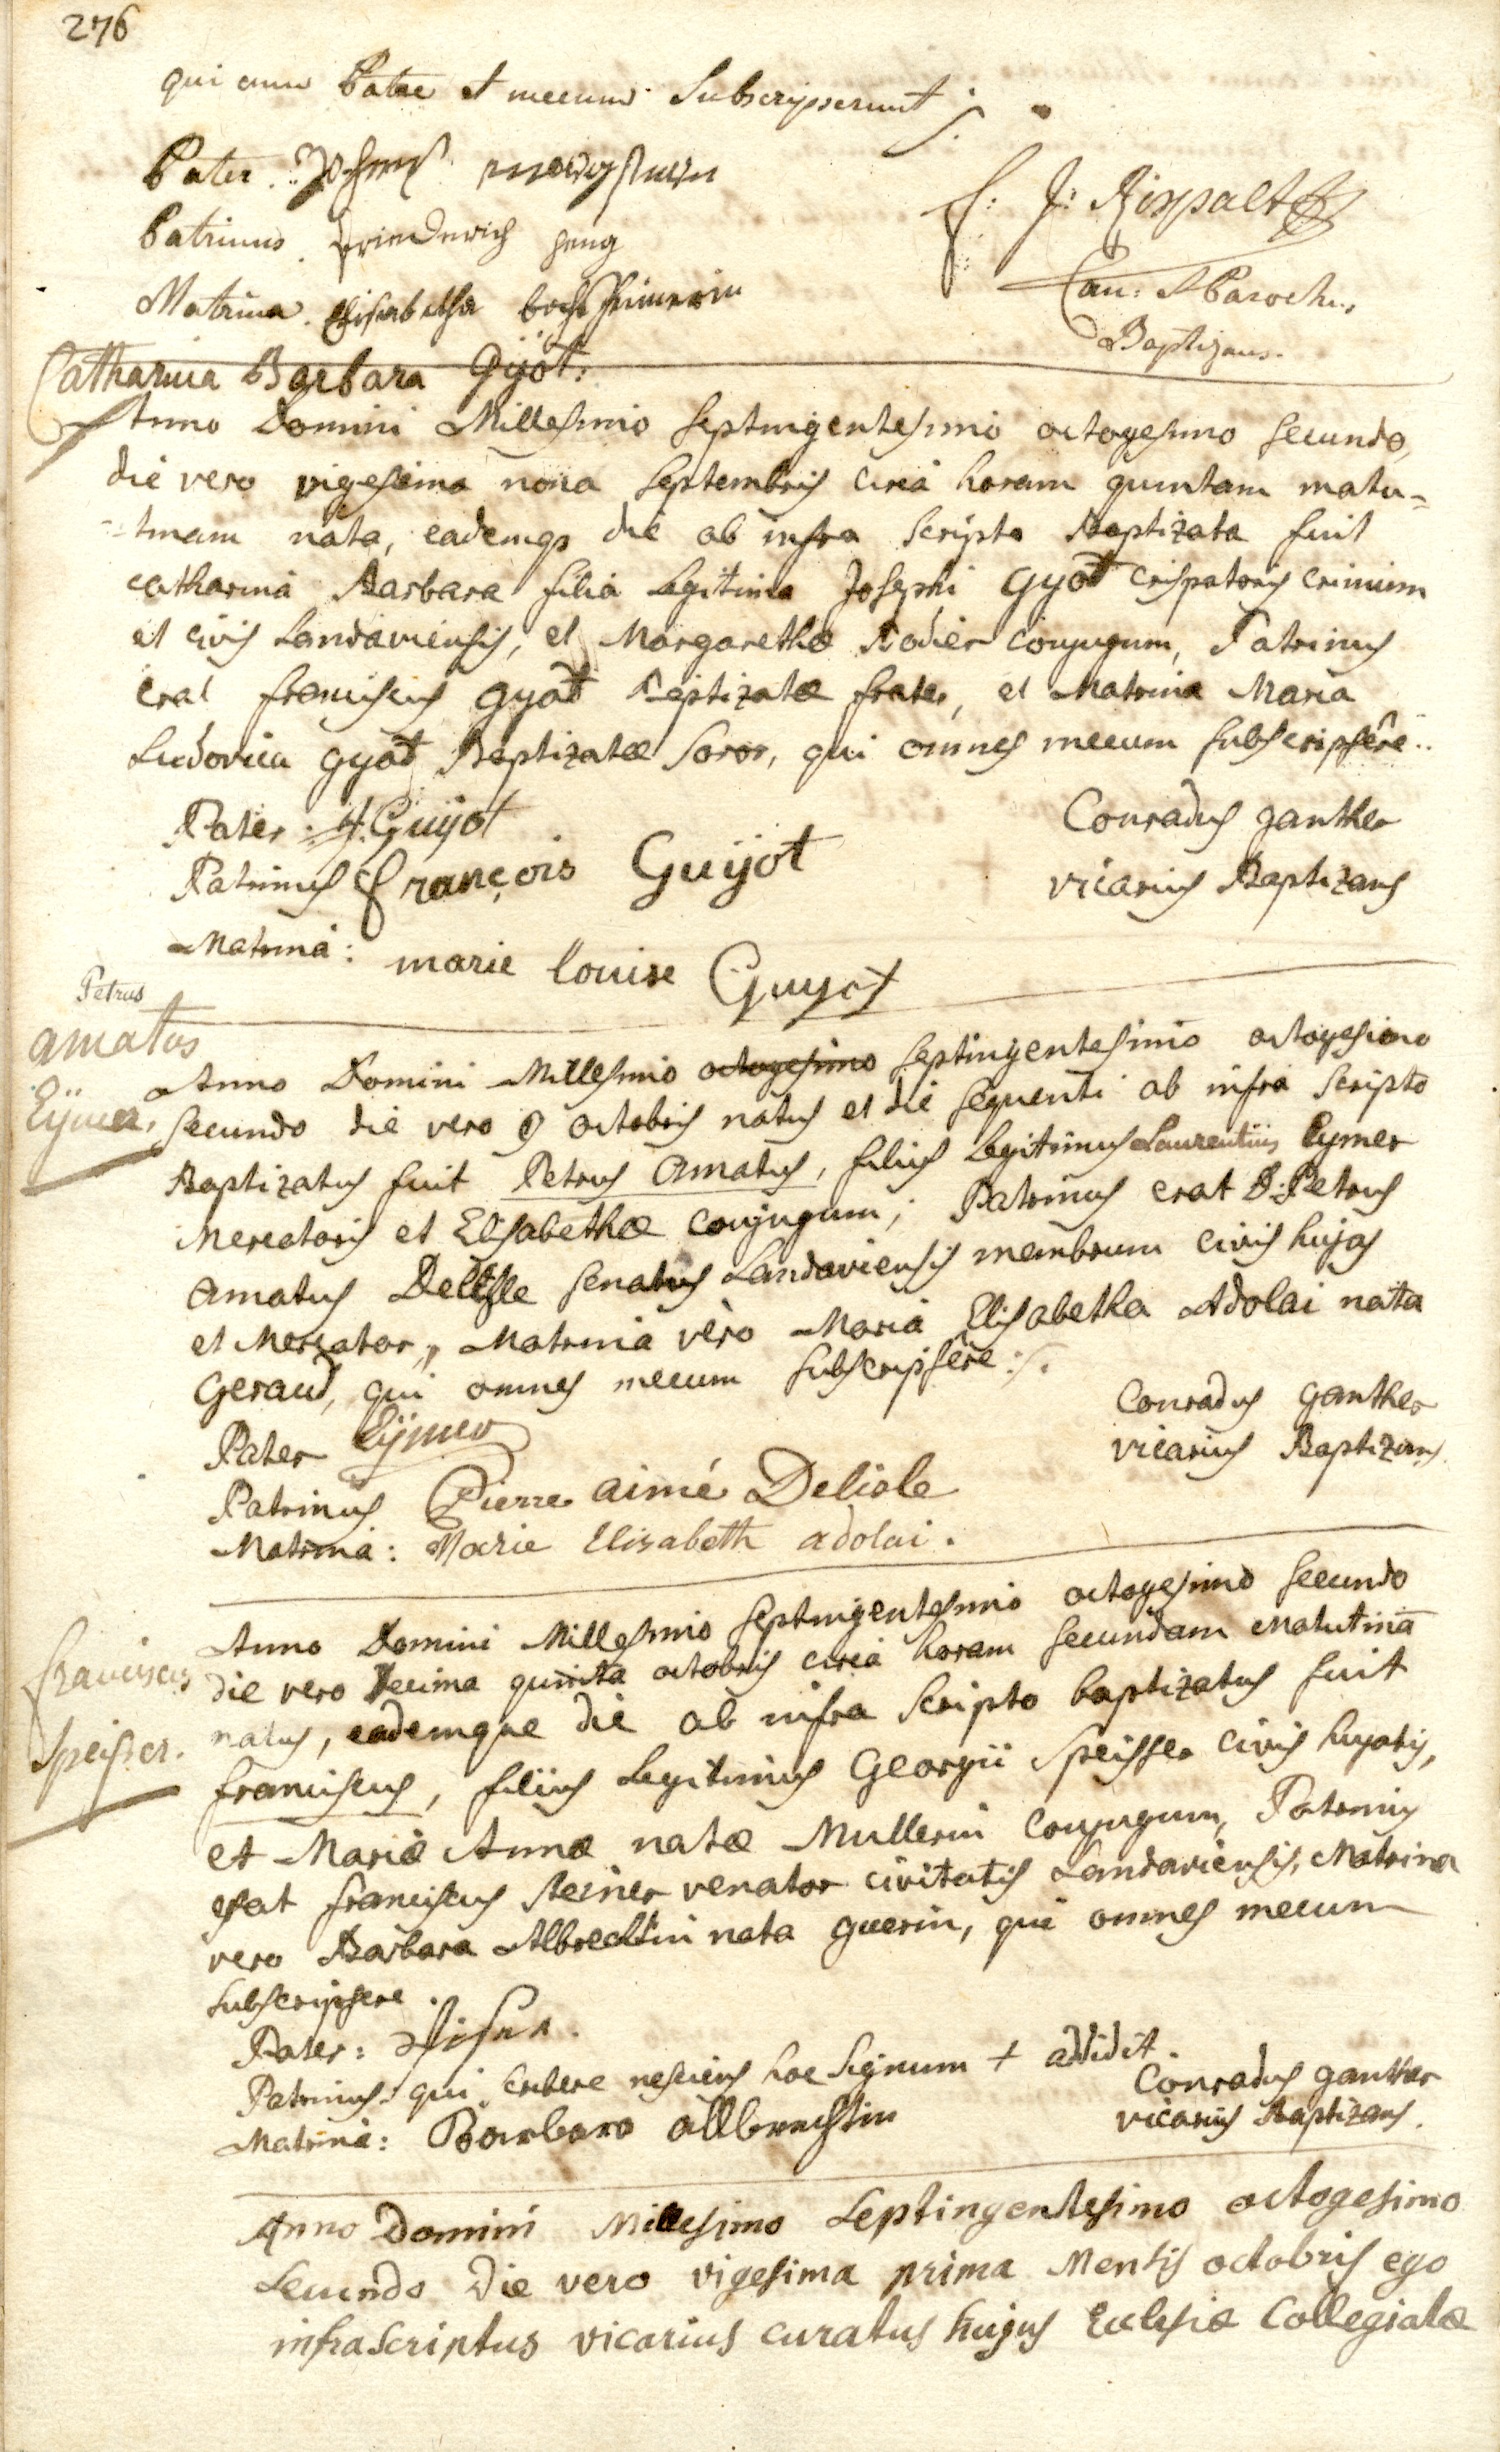 276
qui cum Patre et mecum Subscripserunt
Pater.
Patrinus. Friederich
Matrina. Elisabetha
f: J: Rispalt
Can: & Paroch.,
Baptizans.
Catharina Barbara Gÿot:
Anno Domini Millesimo Septingentesimo octogesimo secundo,
die vero vigesima nona Septembris circa horam quintam matu=
=tinam nata, eademqs die ab infra scripto Baptizata fuit
catharina Barbara filia legitima Josephi Gyot crispatoris crinium
et civis Landaviensis, et Margarethæ Rodier conjugum, Patrinus
erat franciscus gyot Baptizatæ frater, et Matrina Maria
Ludovica gyot Baptizatæ soror, qui omnes mecum subscripsêre..
Pater: J. Guijot
Patrinus François Guijot
Matrina: marie louise Guyot
Conradus ganther
vicarius Baptizans
Petrus
amatus
Eÿmer,
Anno Domini Millesimo octogesimo septingentesimo octogesimo
secundo die vero 9 octobris natus et die sequenti ab infra scripto
Baptizatus fuit Petrus Amatus, filius legitimus Laurentiis Eymer
Mercatoris et Elisabethæ conjugum; Patrinus erat D: Petrus
Amatus Delisle senatus Landaviensis membrum civis hujas
et Mercator, Matrina vèro Maria Elisabetha Adolai nata
Geraud, qui omnes mecum subscripsêre:/.
Pater Eÿmer
Patrinus Pierre aimé Delisle
Matrina: Marie Elisabeth adolai.
Conradus ganther
vicarius Baptizans.
franciscus
Speisser.
Anno Domini Millesimo septingentesimo octogesimo secundo
die vero Decima quinta octobris circa horam secundam Matutinā
natus, eademque die ab infra scripto baptizatus fuit
franciscus, filius legitimus Georgii Speisser civis huyatis,
et Mariæ Annæ natæ Mullerin conjugum, Patrinus
erat franciscus steiner venator civitatis Landaviensis, Matrina
vero Barbara Albrechtin nata guerin, qui omnes mecum
subscripsere.
Pater:
Patrinus: qui scribere nesciens hoc signum + addidit.
Matrina: Barbara allbrechtin
Conradus ganther
vicarius Baptizans.
Anno Domini Millesimo Septingentesimo octogesimo
Secundo Die vero vigesima prima Mensis octobris ego
infrascriptus vicarius curatus hujus Ecclesiæ Collegiatæ